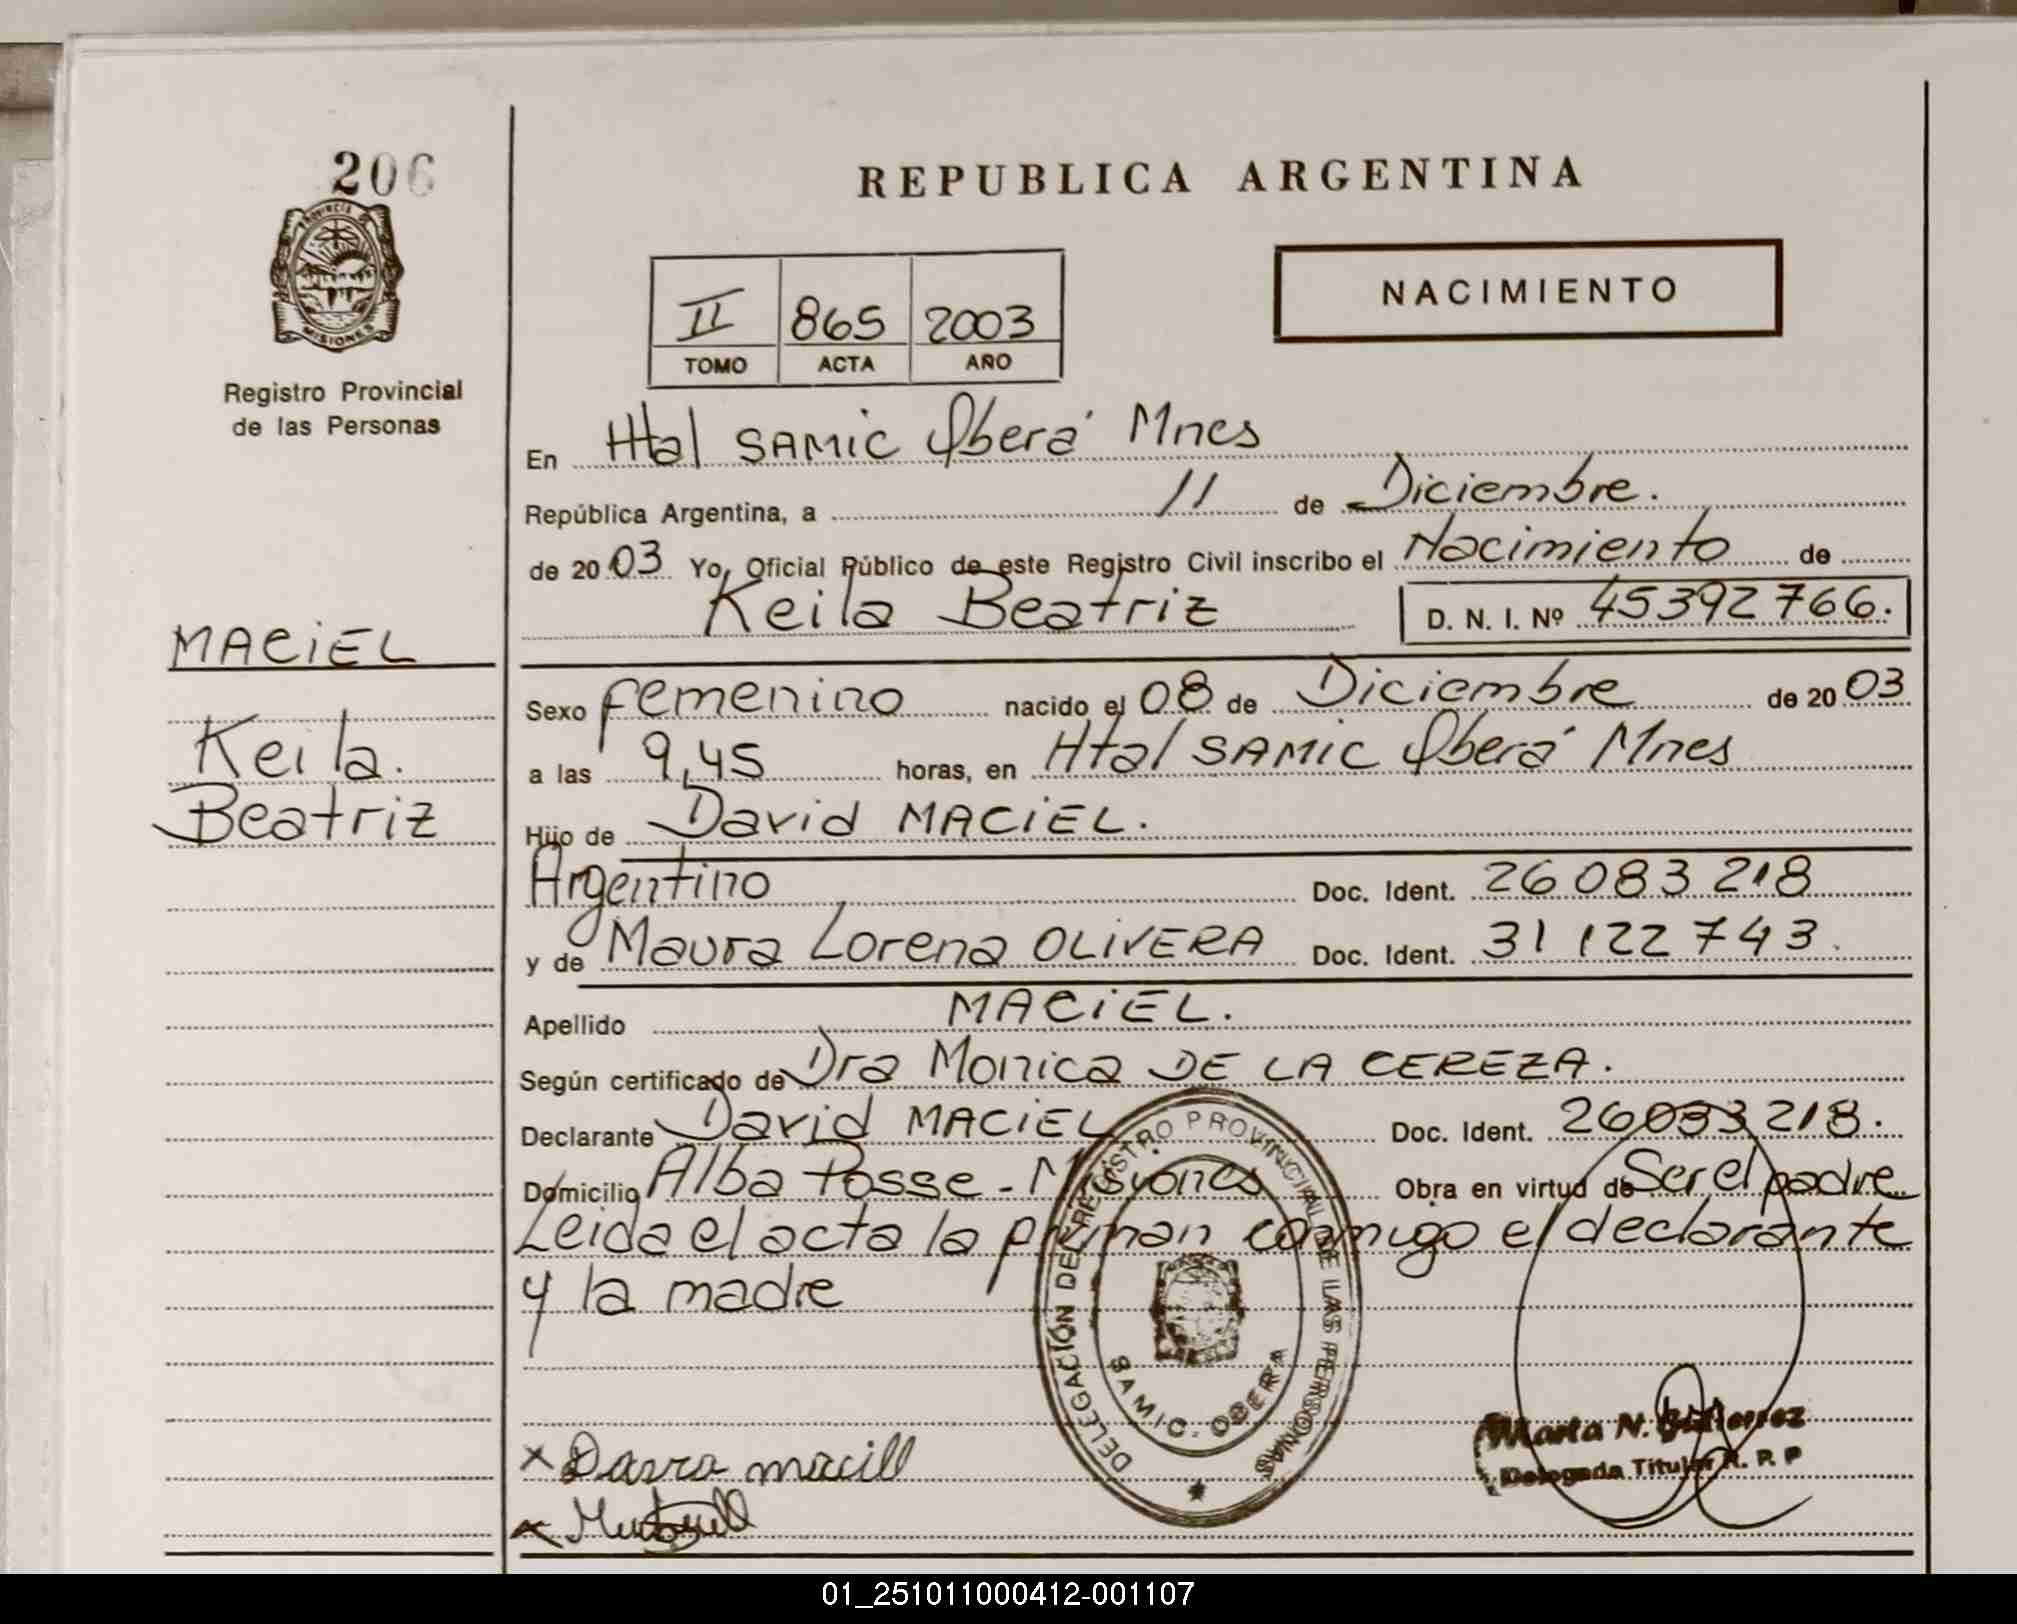 206
PROVINCIA DE
MISIONES
Registro Provincial
de las Personas
REPUBLICA ARGENTINA
NACIMIENTO
II 865 2003
TOMO ACTA AÑO
En Htal SAMIC Oberá Mnes
República Argentina, a 11 de Diciembre.
de 20 03 Yo, Oficial Público de este Registro Civil inscribo el Nacimiento de
Keila Beatriz D. N. I. Nº 45392766.
MACIEL
Keila.
Beatriz
Sexo femenino nacido el 08 de Diciembre de 20 03
a las 9,45 horas, en Htal SAMIC Oberá Mnes
Hijo de David MACIEL.
Argentino Doc. Ident. 26 083 218
y de Maura Lorena OLIVERA Doc. Ident. 31 122 743.
Apellido MACIEL.
Según certificado de Dra Monica DE LA CEREZA.
Declarante David MACIEL Doc. Ident. 26083218.
Domicilio Alba Posse - Misiones Obra en virtud de Ser el padre
Leida el acta la firman conmigo el declarante
y la madre
DELEGACIÓN DEL REGISTRO PROVINCIAL DE LAS PERSONAS
SAMIC. OBERA
Marta N. Gutierrez
Delegada Titular R. P. P
x
x
01_251011000412-001107